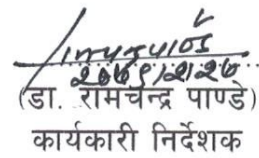 (डा. रामचन्द्र पाण्डे)
कार्यकारी निर्देशक